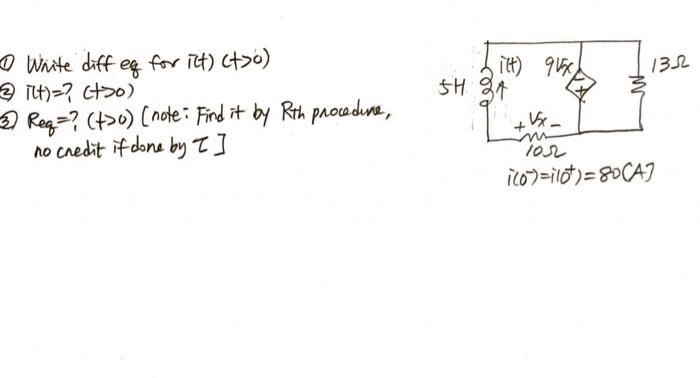 ① Write diff eq for i(t) (t>0)
② i(t)=? (t>0)
③ Req=? (t>0) [note: Find it by Rth procedure,
no credit if done by τ]
5H
i(t)
9Vx
13Ω
- +
+ Vx -
10Ω
i(0⁻)=i(0⁺)=80[A]